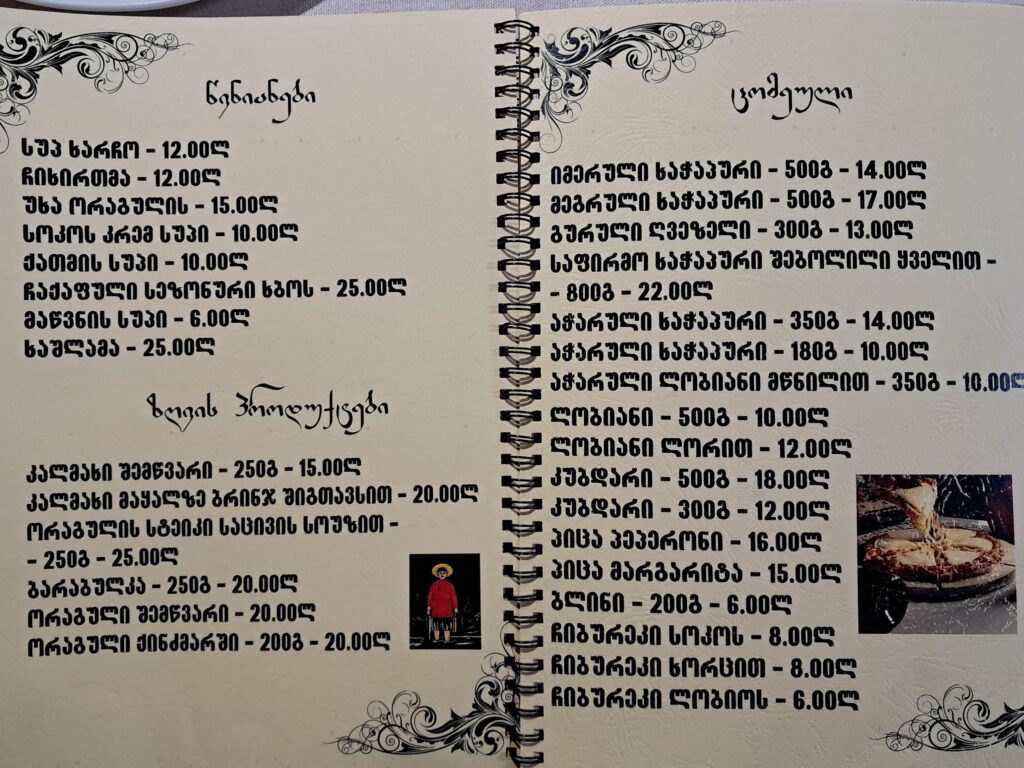 წვნიანები
სუპ ხარჩო - 12.00ლ
ჩიხირთმა - 12.00ლ
უხა ორაგულის - 15.00ლ
სოკოს კრემ სუპი - 10.00ლ
ქათმის სუპი - 10.00ლ
ჩაქაფული სეზონური ხბოს - 25.00ლ
მაწვნის სუპი - 6.00ლ
ხაშლამა - 25.00ლ
ზღვის პროდუქტები
კალმახი შემწვარი - 250გ - 15.00ლ
კალმახი მაყალზე ბრინჯ შიგთავსით - 20.00ლ
ორაგულის სტეიკი საცივის სოუზით -
- 250გ - 25.00ლ
ბარაბულკა - 250გ - 20.00ლ
ორაგული შემწვარი - 20.00ლ
ორაგული ქინძმარში - 200გ - 20.00ლ
ცომეული
იმერული ხაჭაპური - 500გ - 14.00ლ
მეგრული ხაჭაპური - 500გ - 17.00ლ
გურული ღვეზელი - 300გ - 13.00ლ
საფირმო ხაჭაპური შებოლილი ყველით -
- 800გ - 22.00ლ
აჭარული ხაჭაპური - 350გ - 14.00ლ
აჭარული ხაჭაპური - 180გ - 10.00ლ
აჭარული ლობიანი მწნილით - 350გ - 10.00ლ
ლობიანი - 500გ - 10.00ლ
ლობიანი ლორით - 12.00ლ
კუბდარი - 500გ - 18.00ლ
კუბდარი - 300გ - 12.00ლ
პიცა პეპერონი - 16.00ლ
პიცა მარგარიტა - 15.00ლ
ბლინი - 200გ - 6.00ლ
ჩიბურეკი სოკოს - 8.00ლ
ჩიბურეკი ხორცით - 8.00ლ
ჩიბურეკი ლობიოს - 6.00ლ